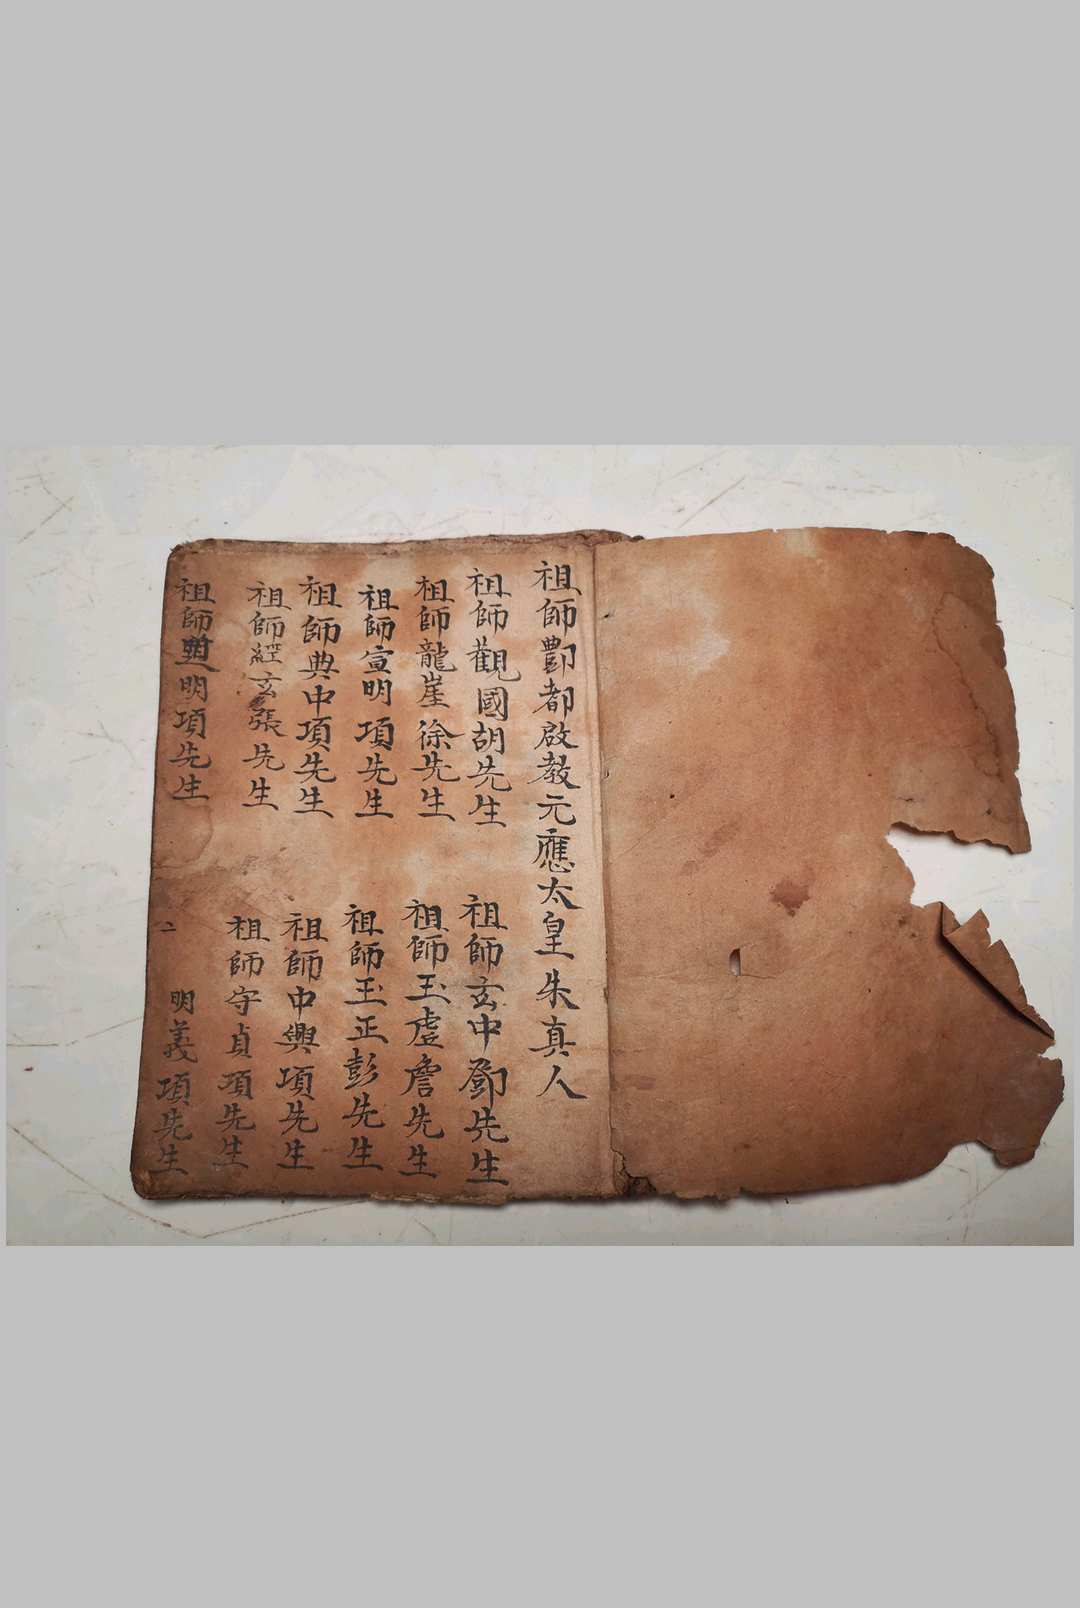 祖師酆都啟教元應太皇朱真人
祖師觀國胡先生
祖師玄中鄧先生
祖師龍崖徐先生
祖師玉虛詹先生
祖師宣明項先生
祖師玉正彭先生
祖師典中項先生
祖師中興項先生
祖師經玄張先生
祖師守貞項先生
祖師 明項先生
二 明義項先生